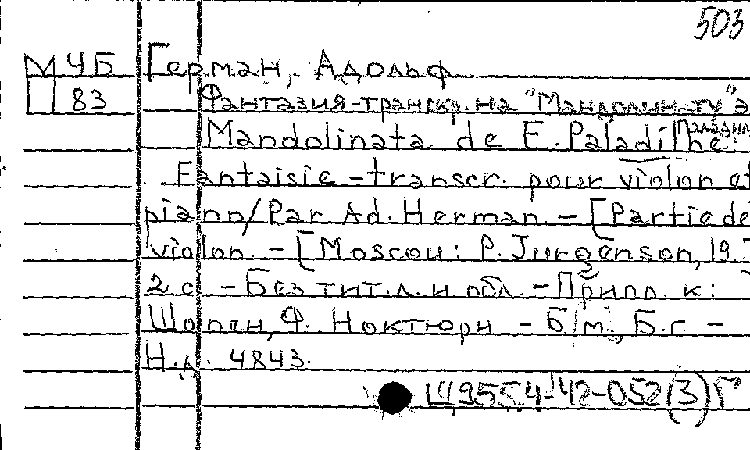 503
М 4Б Герман, Адольф
П 83 Фантазия-транскр. на "Мандолинату"
Mandolinata de E. Paladilhe.
Fantaisie-transcr. pour violon et
piano/Par Ad. Herman. - [Partie de
violon. - [Moscou: P. Jurgenson, 19
2 с. - Без тит. л. и обл. - Прилож. к:
Шопен, Ф. Ноктюрн - Б/м, Б.г. -
Н.д. 4843.
Щ955.4-42-052(3)Г